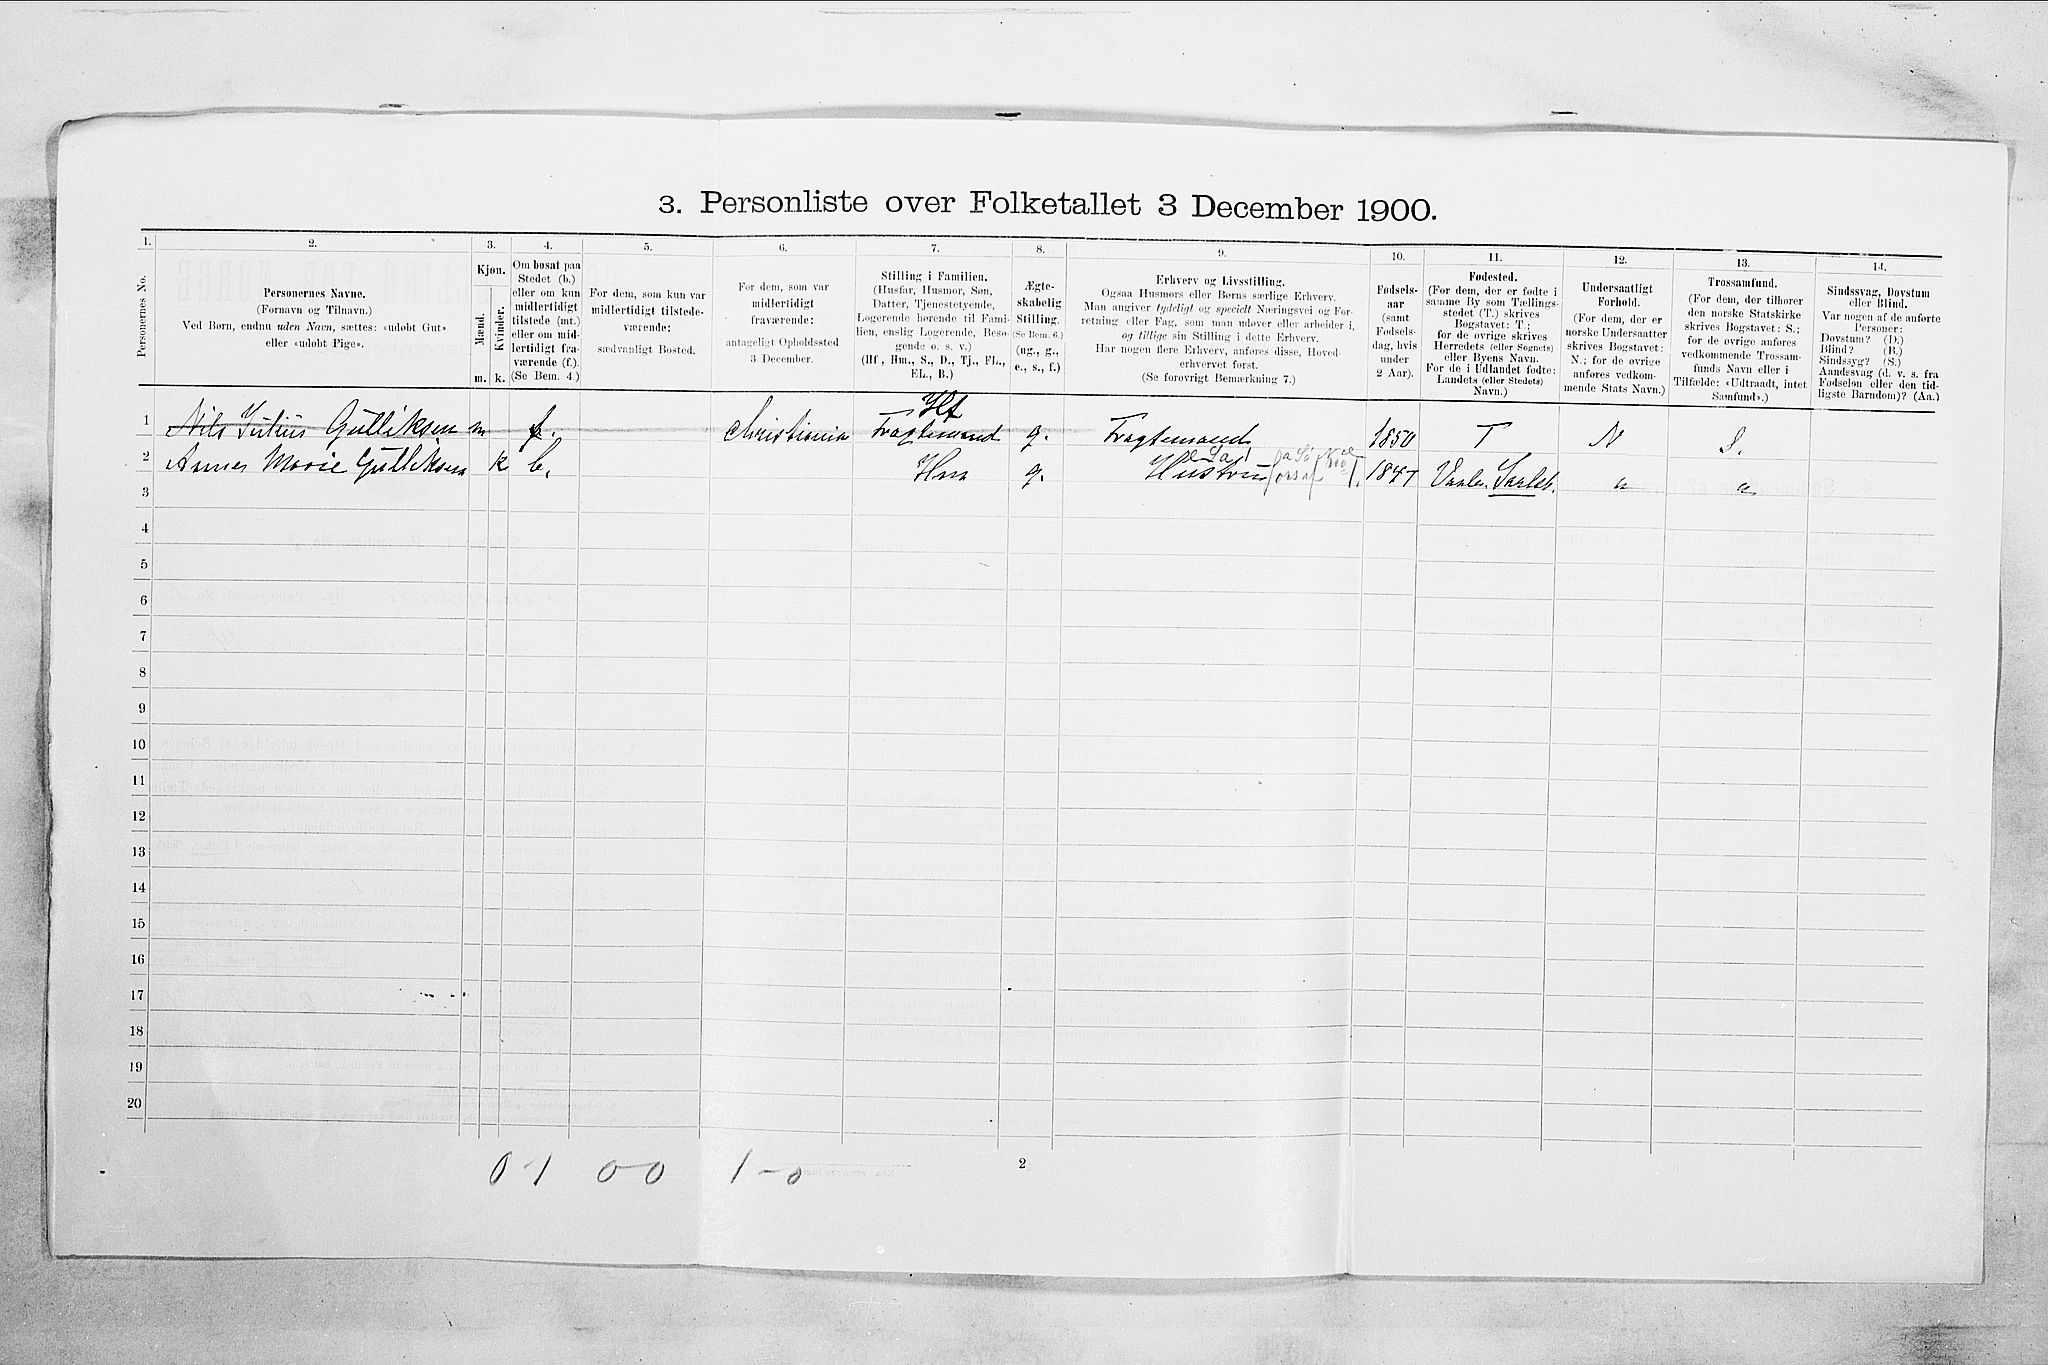 3. Personliste over Folketallet 3 December 1900.
1. 2. 3. 4. 5. 6. 7. 8. 9. 10. 11. 12. 13. 14.
Personernes No.
Personernes Navne.
(Fornavn og Tilnavn.)
Ved Børn, endnu uden Navn, sættes: «udøbt Gut»
eller «udøbt Pige».
Kjøn.
Mænd.
Kvinder.
m. k.
Om bosat paa
Stedet (b.)
eller om kun
midlertidigt
tilstede (mt.)
eller om mid-
lertidigt fra-
værende (f.).
(Se Bem. 4.)
For dem, som kun var
midlertidigt tilstede-
værende:
sædvanligt Bosted.
For dem, som var
midlertidigt
fraværende:
antageligt Opholdssted
3 December.
Stilling i Familien.
(Husfar, Husmor, Søn,
Datter, Tjenestetyende,
Logerende hørende til Fami-
lien, enslig Logerende, Besø-
gende o. s. v.)
(Hf., Hm., S., D., Tj., FL.,
EL., B.)
Ægte-
skabelig
Stilling.
(Se Bem. 6.)
(ug., g.,
e., s., f.)
Erhverv og Livsstilling.
Ogsaa Husmors eller Børns særlige Erhverv.
Man angiver tydeligt og specielt Næringsvei og For-
retning eller Fag, som man udøver eller arbeider i,
og tillige sin Stilling i dette Erhverv.
Har nogen flere Erhverv, anføres disse, Hoved-
erhvervet først.
(Se forøvrigt Bemærkning 7.)
Fødsels-
aar
(samt
Fødsels-
dag, hvis
under
2 Aar).
Fødested.
(For dem, der er fødte i
samme By som Tællings-
stedet (T.) skrives
Bogstavet: T;
for de øvrige skrives
Herredets (eller Sognets)
eller Byens Navn.
For de i Udlandet fødte:
Landets (eller Stedets)
Navn.)
Undersaatligt
Forhold.
(For dem, der er
norske Undersaatter
skrives Bogstavet:
N.; for de øvrige
anføres vedkom-
mende Stats Navn.)
Trossamfund.
(For dem, der tilhører
den norske Statskirke
skrives Bogstavet: S.;
for de øvrige anføres
vedkommende Trossam-
funds Navn eller i
Tilfælde: «Udtraadt, intet
Samfund».)
Sindssvag, Døvstum
eller Blind.
Var nogen af de anførte
Personer:
Døvstum? (D.)
Blind? (B.)
Sindssyg? (S.)
Aandssvag (d. v. s. fra
Fødselen eller den tid-
ligste Barndom)? (Aa.)
Hf
1 Nils Julius Gulliksen m f. Christiania Fragtemand g. Fragtemand 1850 T N S.
2 Annes Marie Gulliksen k b. Hm g. Hustru 1847 Vaaler. Smaalen. " "
3
4
5
6
7
8
9
10
11
12
13
14
15
16
17
18
19
20
0-1 0-0 1-0
2